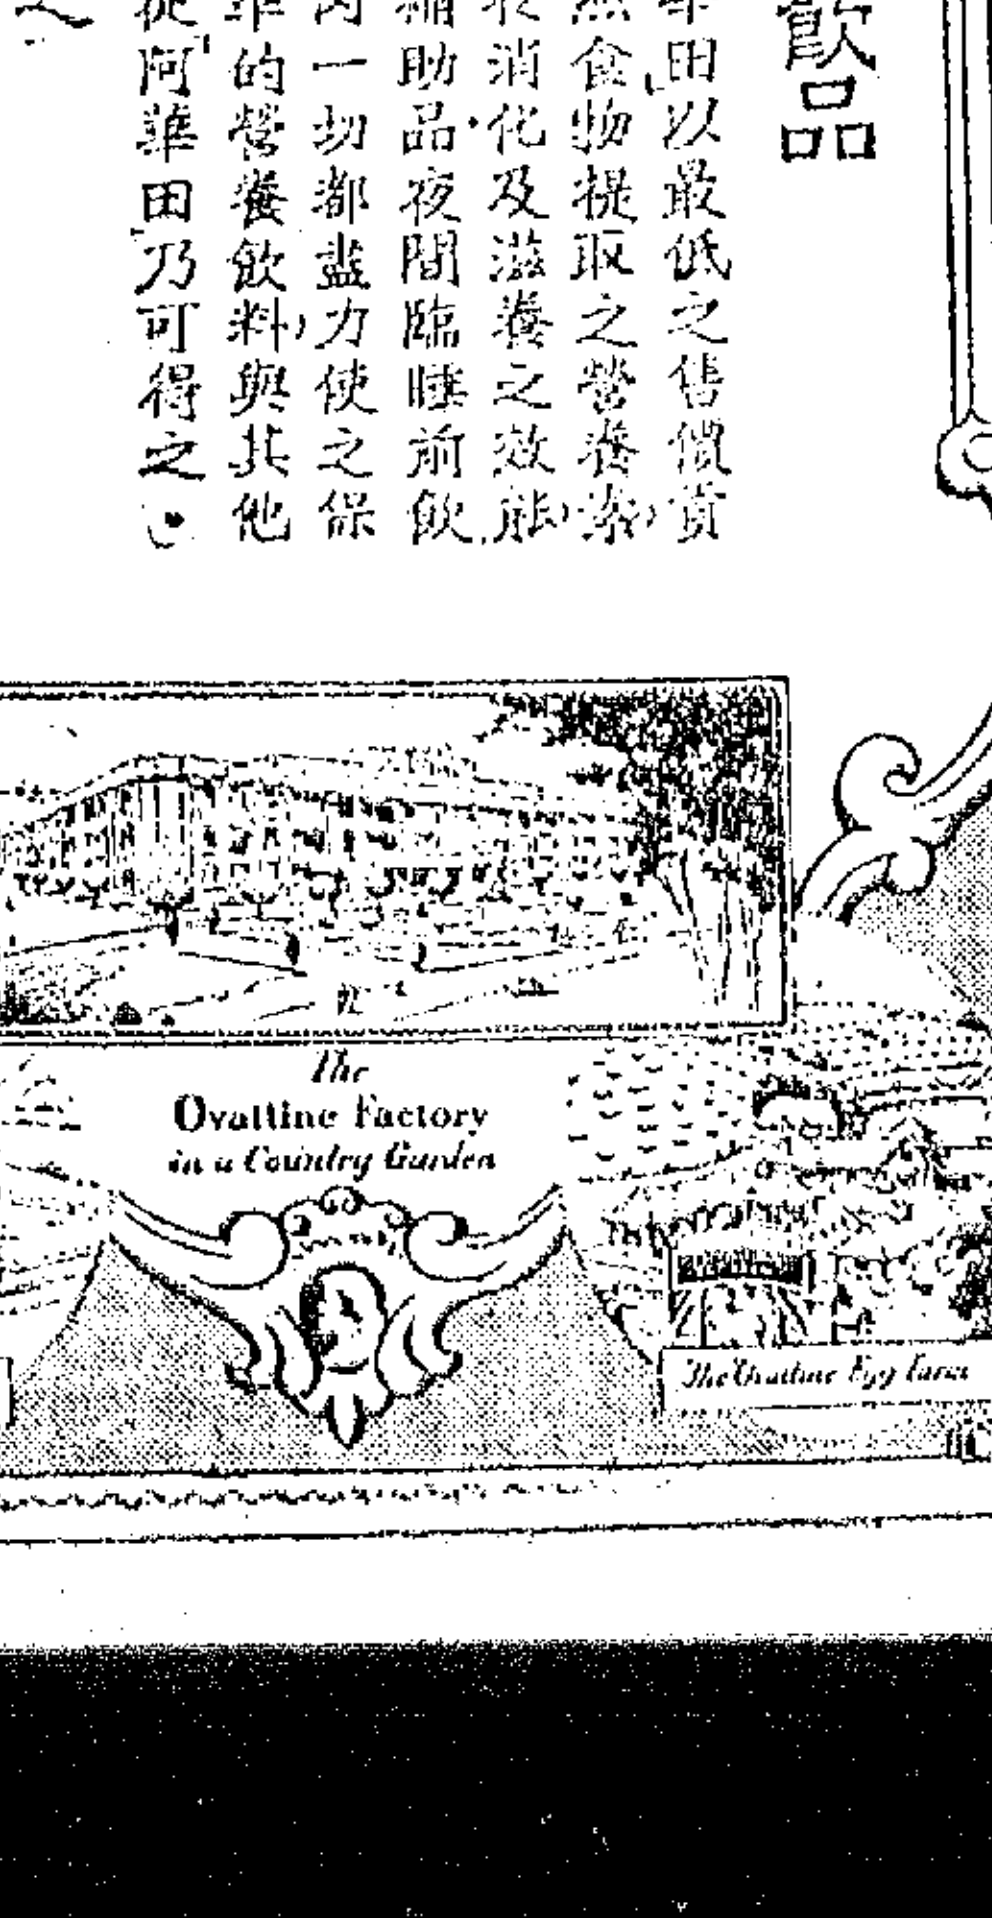 飲品
華田以最低之售價貢
然食物提取之營養素)
消化及滋養之效能)
補助品・夜間臨睡前飲
內一切都盡力使之保
的營養飲料)與其他
從阿華田乃可得之。
之
The
Ovaltine Factory
in a Country Garden
The Ovaltine Egg Farm